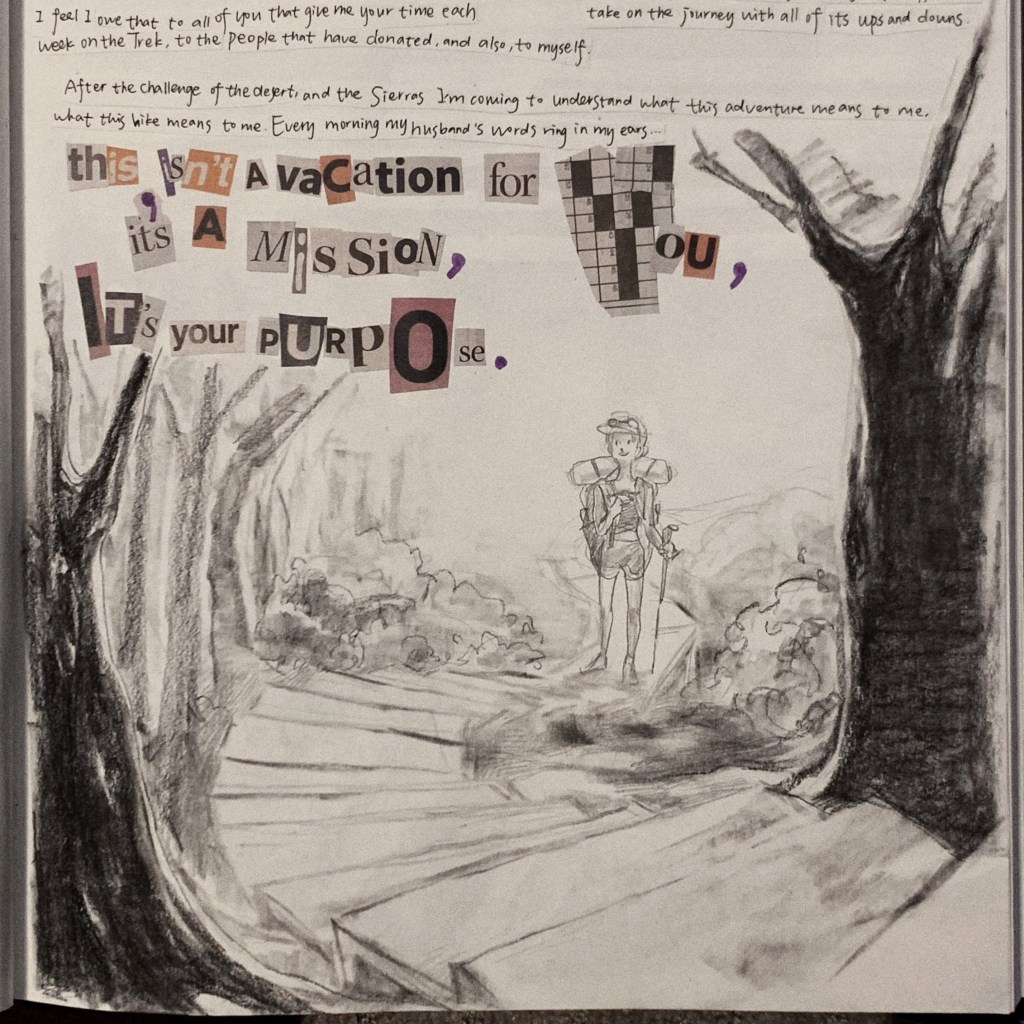 I feel I owe that to all of you that give me your time each
week on the Trek, to the people that have donated, and also, to myself.
take on the journey with all of its ups and downs.
After the challenge of the desert, and the Sierras I'm coming to understand what this adventure means to me,
what this hike means to me. Every morning my husband's words ring in my ears...
this isn't A vaCation for YOU,
its A MiSSiON,
IT's your PURPOse.